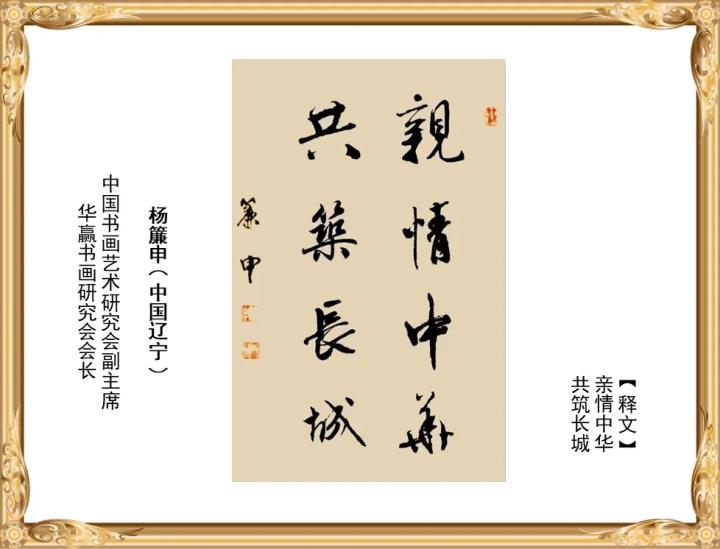 親情中華
共築長城
簾申
【释文】
亲情中华
共筑长城
杨簾申（中国辽宁）
中国书画艺术研究会副主席
华赢书画研究会会长